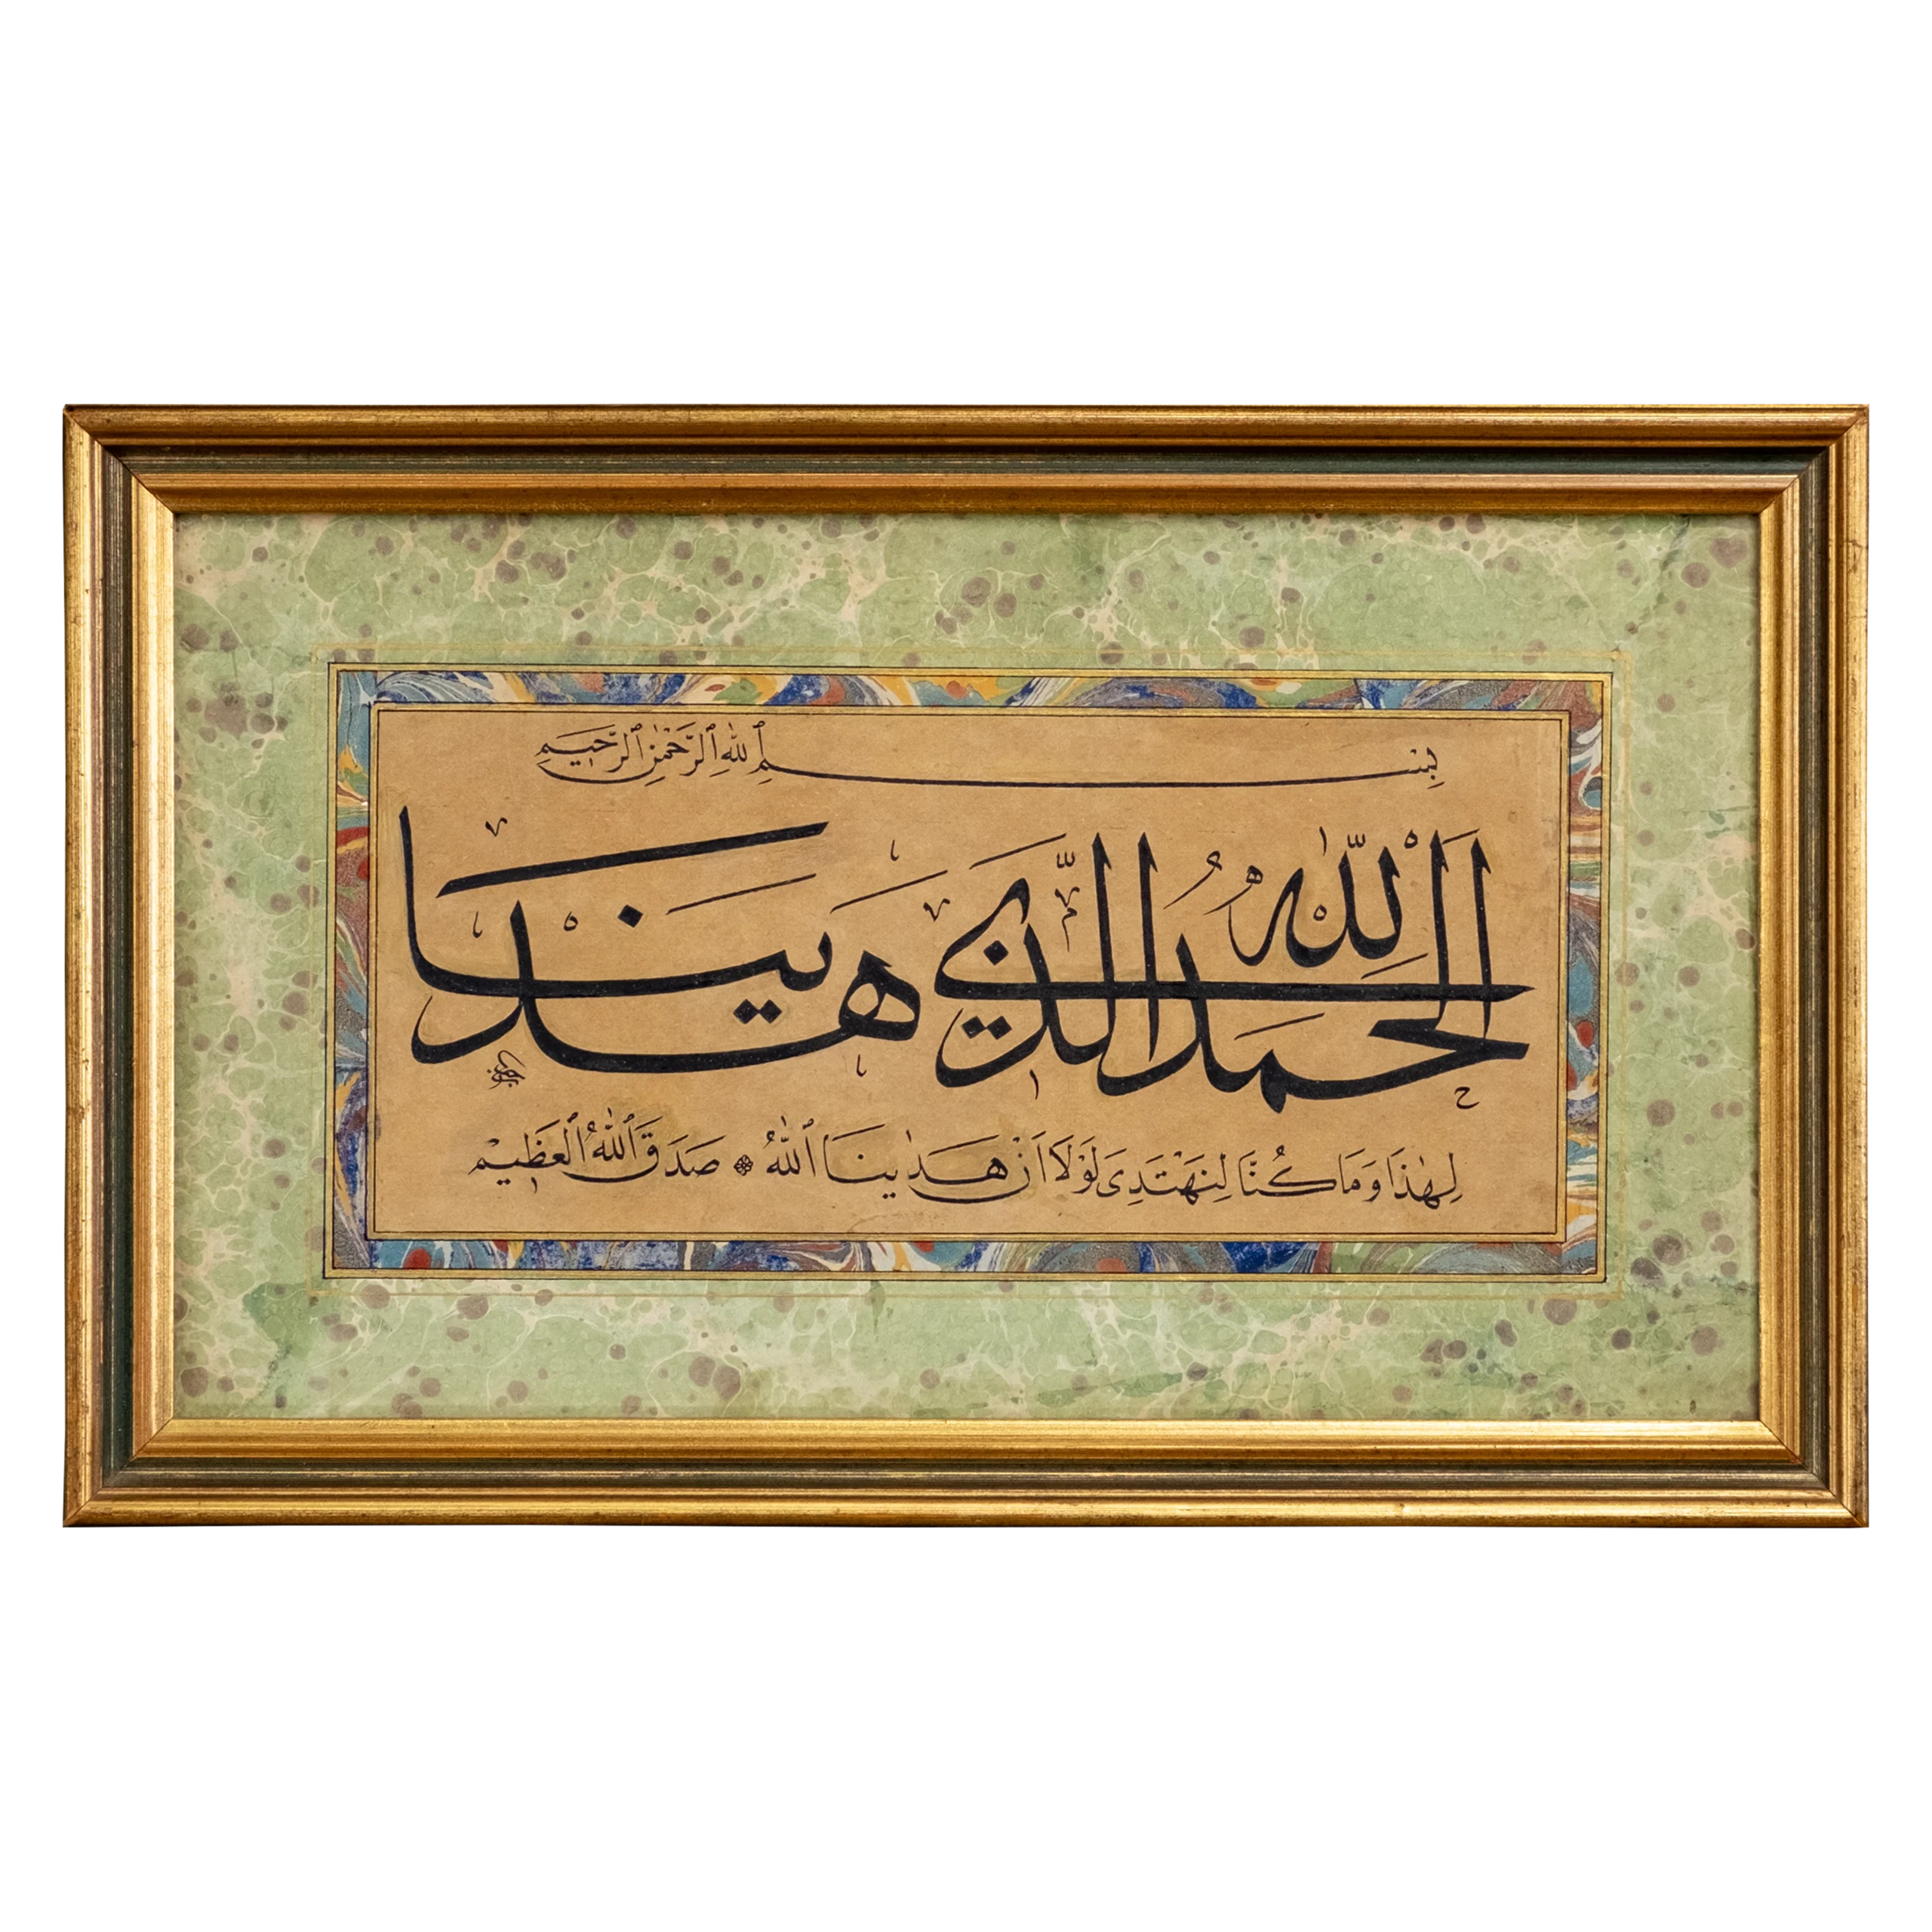 بِسْمِ ٱللّٰهِ ٱلرَّحْمٰنِ ٱلرَّحِيمِ
اَلْحَمْدُ لِلّٰهِ الَّذِي هَدٰينَا
لِهٰذَا وَمَا كُنَّا لِنَهْتَدِيَ لَوْلَا اَنْ هَدٰينَا ٱللّٰهُ ❁ صَدَقَ ٱللّٰهُ ٱلْعَظِيمْ